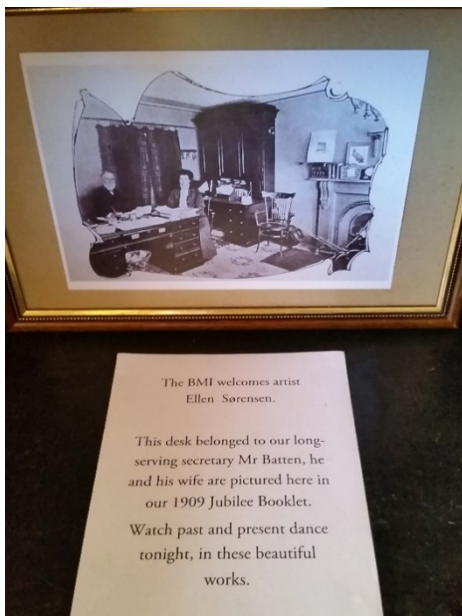 The BMI welcomes artist
Ellen Sørensen.
This desk belonged to our long-
serving secretary Mr Batten, he
and his wife are pictured here in
our 1909 Jubilee Booklet.
Watch past and present dance
tonight, in these beautiful
works.